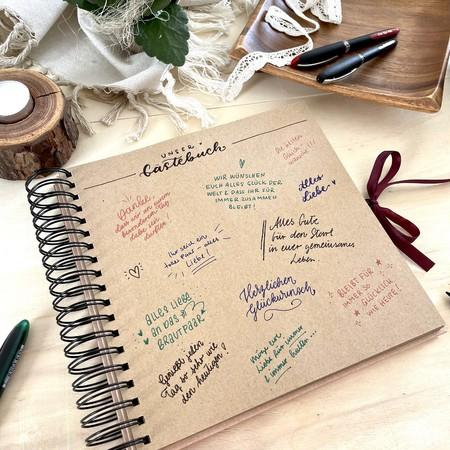 UNSER
Gästebuch
Die besten
WIR WÜNSCHEN
EUCH ALLES GLÜCK DER
WELT & DASS IHR FÜR
IMMER ZUSAMMEN
BLEIBT!
Alles
Liebe
Danke,
dass wir an eurem
besonderen Tag
dabei sein
durften!
Alles Gute
für den Start
in euer gemeinsames
Leben..
Ihr seid ein
tolles Paar - alles
Liebe!
Herzlichen
Glückwunsch
BLEIBT FÜR
IMMER SO
GLÜCKLICH
WIE HEUTE!
ALLES LIEBE
AN DAS
BRAUTPAAR
Genießt jeden
Tag so sehr wie
den heutigen!
möge eure
Liebe für immer
& immer halten...